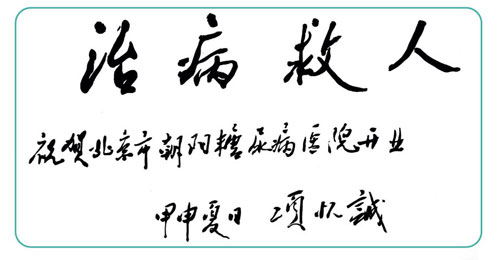 治病救人
祝贺北京市朝阳糖尿病医院开业
甲申夏日 项怀誠